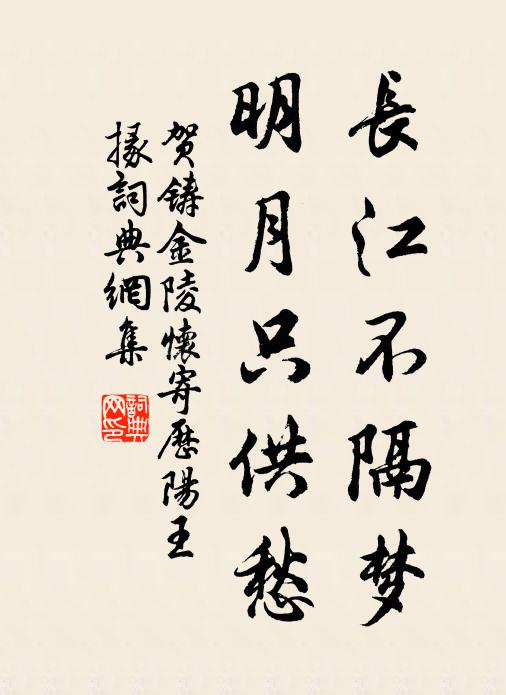 長江不隔梦
明月只供愁
贺鑄金陵懷寄歷陽王
掾詞典網集
詞典
网印